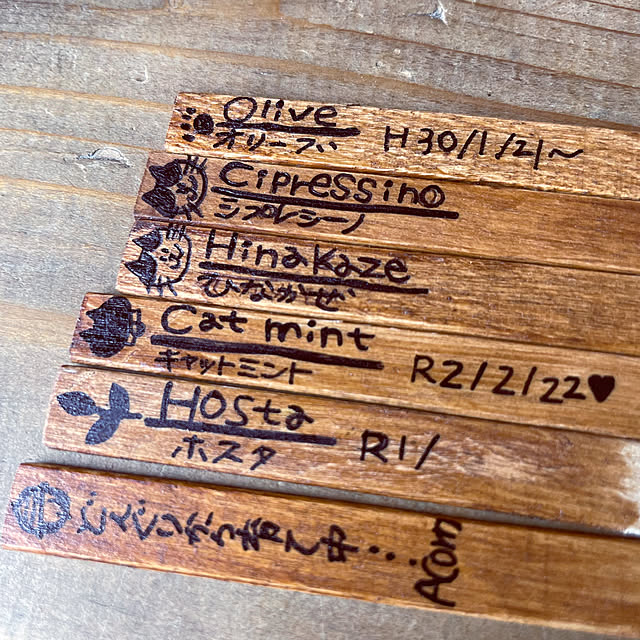 Olive
オリーブ H30/1/21~
Cipressino
シプレシーノ
Hinakaze
ひなかぜ
Cat mint
キャットミント R2/2/22♥
Hosta
ホスタ R1/
どんぐりから育て中... Acorn